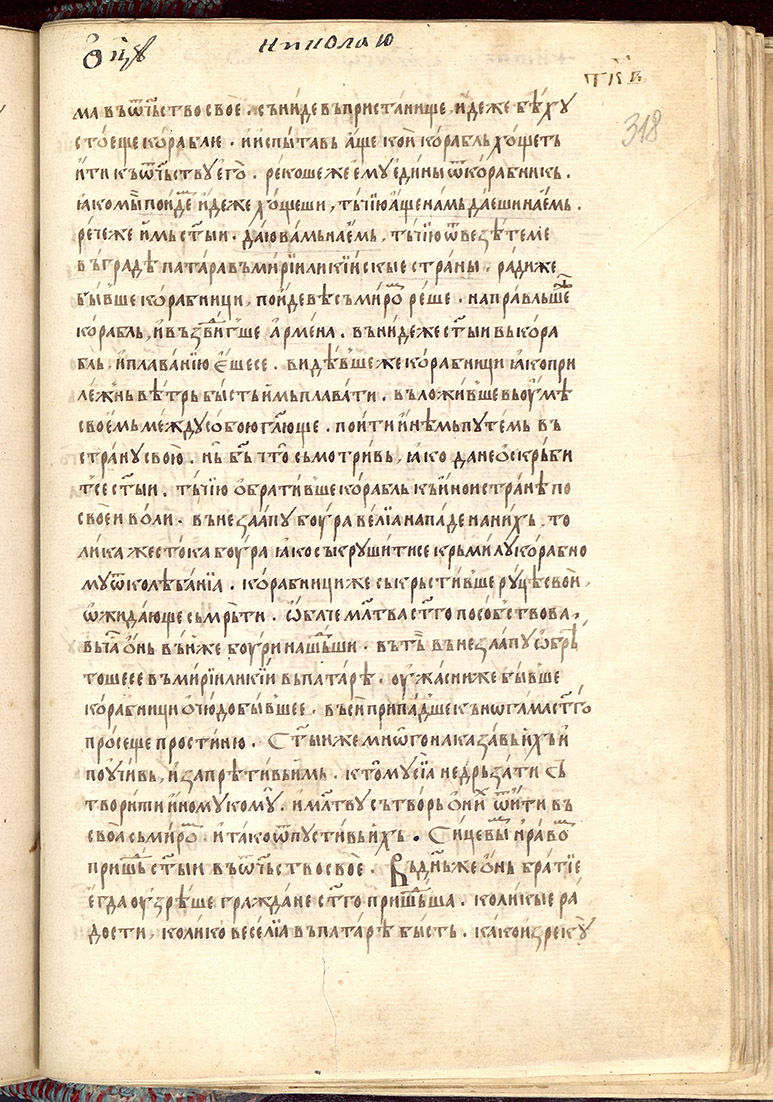 ѻц҃ꙋ николаю
тг҃і
318
ма въ ѿчьство своѐ. съни́де въ приста́нище, и҆де́же бѣ́хꙋ
стое́ще кора́блїе. и҆ и҆спыта́въ а҆́ще кой кора́бль хо́щетъ
и҆ти́ къ ѿчьствꙋ є҆го̀. реко́ше же є҆мꙋ̀ є҆ди́ны ѿ кора́бникь.
ꙗ҆ко мы̀ по́идем и҆де́же хо́щеши, ты́чїю а҆́ще на́мь даеши нае́мь.
ре́че же и҆̀мь ст҃ыи. даю̀ ва́мь нае́мь, ты́чїю ѿвезѣ́те мѐ
въ гра́дѣ пата́ра въ мѵ́рїи ликїи́скые страны̀. ра́ди же
бы́вше кора́бници, по́йде вѣ съ ми́ром ре́ше. напра́вльше
кора́бль, и҆ възви́гше а҆́рмена. въни́де же ст҃ыи вь кора́
бль, и҆ пла́ванїю є҆́ше се. ви́дѣвше же кора́бници ꙗ҆ко при
ле́жнь вѣ́трь бы́сть и҆̀мь пла́вати. въложи́вше вь оу҆мѣ̀
свое́мь ме́ждꙋ собо́ю гл҃юще. пои́ти и҆нѣ́мь пꙋте́мь въ
странꙋ̀ свою̀. нь̀ бг҃ь что̀ съмотри́вь, ꙗ҆ко да не ѡ҆скрьби́
т се ст҃ыи. ты́чїю ѡ҆брати́вше кора́бль къ и҆нои странѣ̀ по
свое́и во́ли. вънеза́апꙋ боу́ра ве́лїа напа́де на ни́хъ. то
ли́ка жесто́ка боу́ра ꙗ҆ко съкрꙋши́ти се крьми́лꙋ кора́бно
мꙋ ѿ колѣ́банїа. кора́бници же съкрьсти́вше рꙋ́цѣ свои̑,
ѡ҆жида́юще съмрь́ти. ѡ҆ба́че мл҃тва ст҃го пособьствова,
въ тъ̀ вънеза́апꙋ ѡ҆брѣ́
тоше се въ мѵ́рїи ликїи́ вь пата́рѣ. оу҆жа́сни же бы́вше
кора́бници ѡ҆ чю́до бы́вшее. въси̏ припа́дше къ ногама ст҃го
просе́ще прости́ню. Ст҃ыи же мнѡ́го наказа́вь и҆́хъ и҆
поу́чивь, и҆ запрѣти́вь и҆̀мь. к томꙋ̀ сїа̀ не дрьза́ти съ
твори́ти и҆но́мꙋ комꙋ̀. и҆ мл҃твꙋ сътво́рь ѡ҆ ни́х ѿи́ти въ
своа̀ съ ми́ром. и҆ та́ко ѿпꙋсти́вь и҆́хъ. Си́цевым нра́вом
прише́д ст҃ыи въ ѿчьство своѐ. Въ дн҃ь же ѡ҆́нь бра́тїе
є҆гда̀ оу҆зрѣ́ше гра́ждане ст҃го прише́дша. коли́кые ра́
дости, коли́ко весе́лїа въ пата́рѣ бы́сть. ка́ко и҆зрекꙋ̀